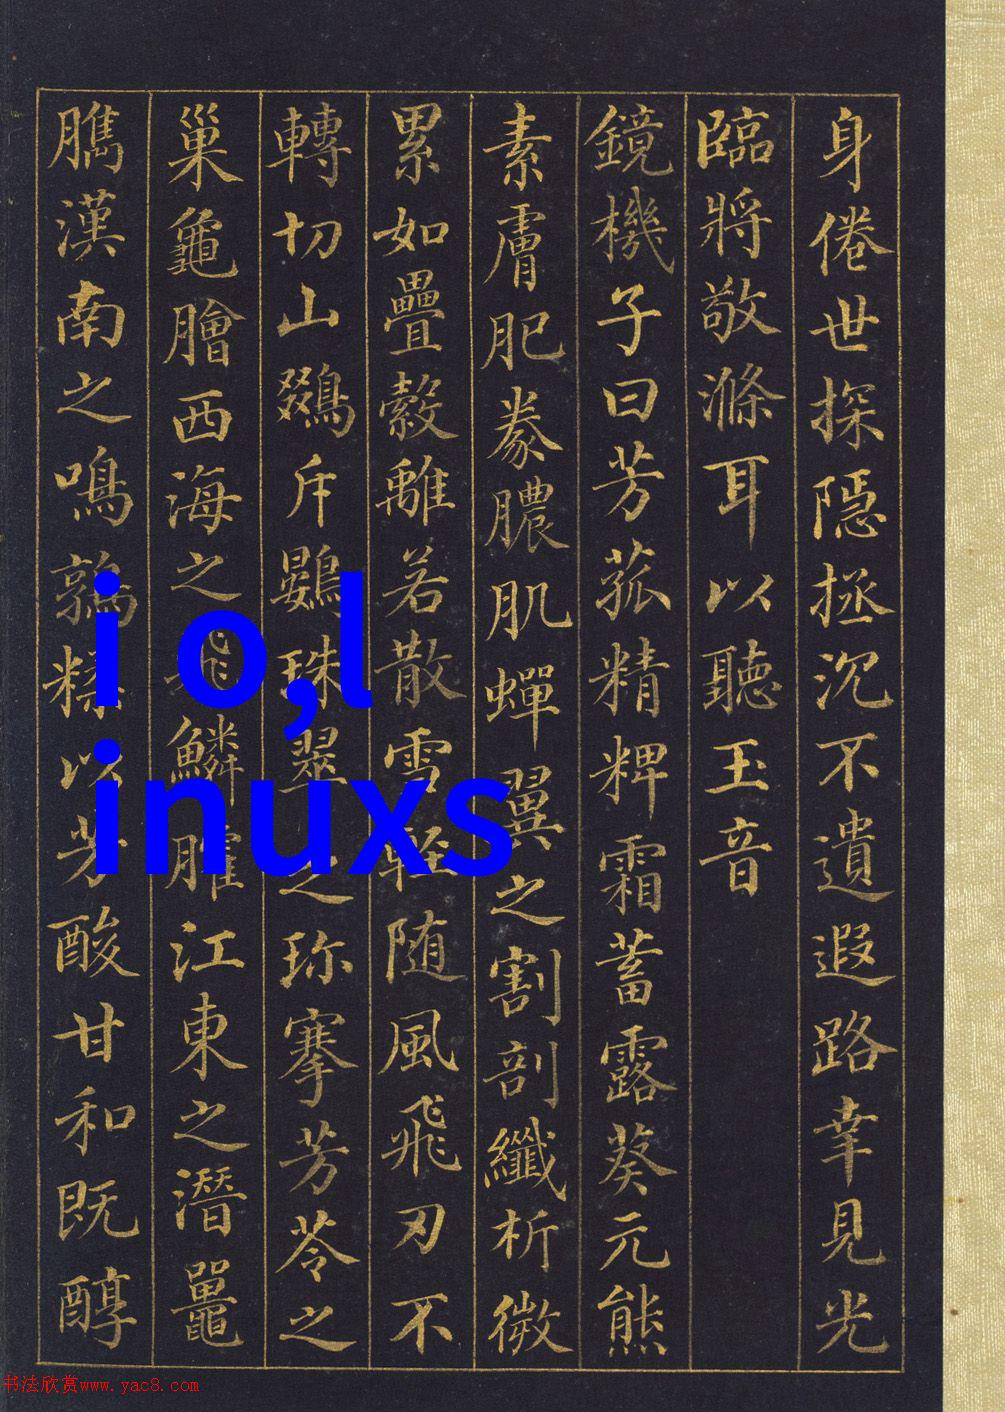 身倦世探隠拯沉不遺遐路幸見光
臨將敬滌耳以聽玉音
鏡機子曰芳菰精粺霜蓄露葵元熊
素膚肥豢膿肌蟬翼之割剖纖析微
累如疊縠離若散雪輕随風飛刃不
轉切山鵽斥鷃珠翠之珎搴芳苓之
巢龜膾西海之飛鱗臛江東之潛鼉
臇漢南之鳴鶉糅以芳酸甘和既醇
i o,l
inuxs
书法欣赏www.yac8.com